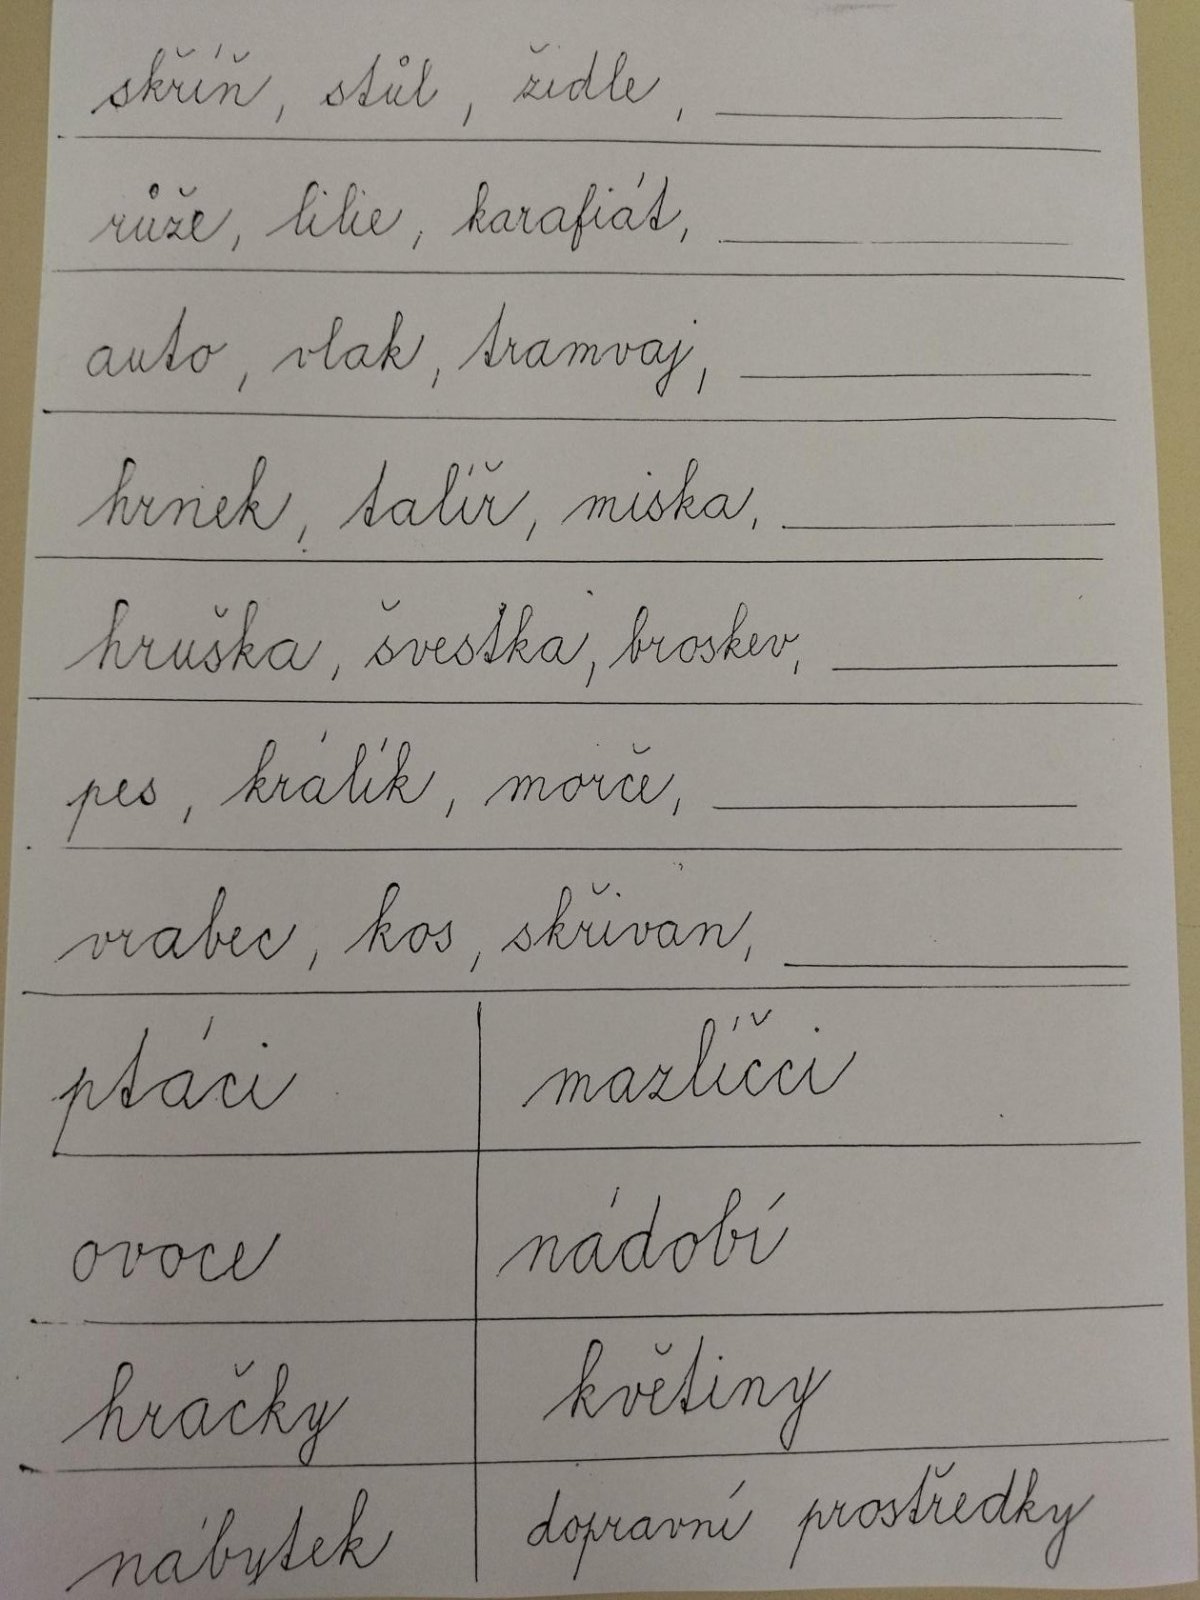 skříň, stůl, židle,
růže, lilie, karafiát,
auto, vlak, tramvaj,
hrnek, talíř, miska,
hruška, švestka, broskev,
pes, králík, morče,
vrabec, kos, skřivan,
ptáci mazlíčci
ovoce nádobí
hračky květiny
nábytek dopravní prostředky